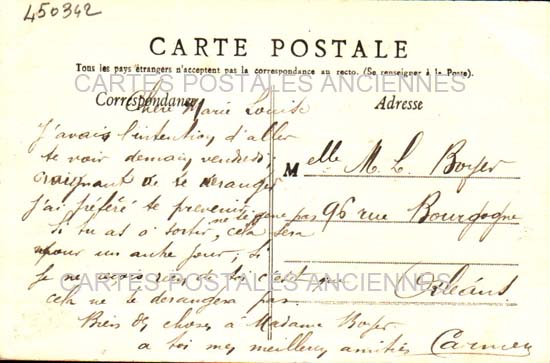 450342
CARTE POSTALE
Tous les pays étrangers n'acceptent pas la correspondance au recto. (Se renseigner à la Poste).
CARTES POSTALES ANCIENNES
Correspondance
Adresse
Chère Marie Louise
J'avais l'intention d'aller
te voir demain vendredi,
craignant de te déranger
j'ai préféré te prévenir
ne te gêne pas
Si tu as à sortir, cela sera
pour un autre jour, si
je ne reçois rien de toi c'est
CARTES POSTALES ANCIENNES
cela ne te derangera pas.
Bien des choses à Madame Boyer
a toi mes meilleures amitiés Carmen
Melle M. L. Boyer
96 rue Bourgogne
Orléans